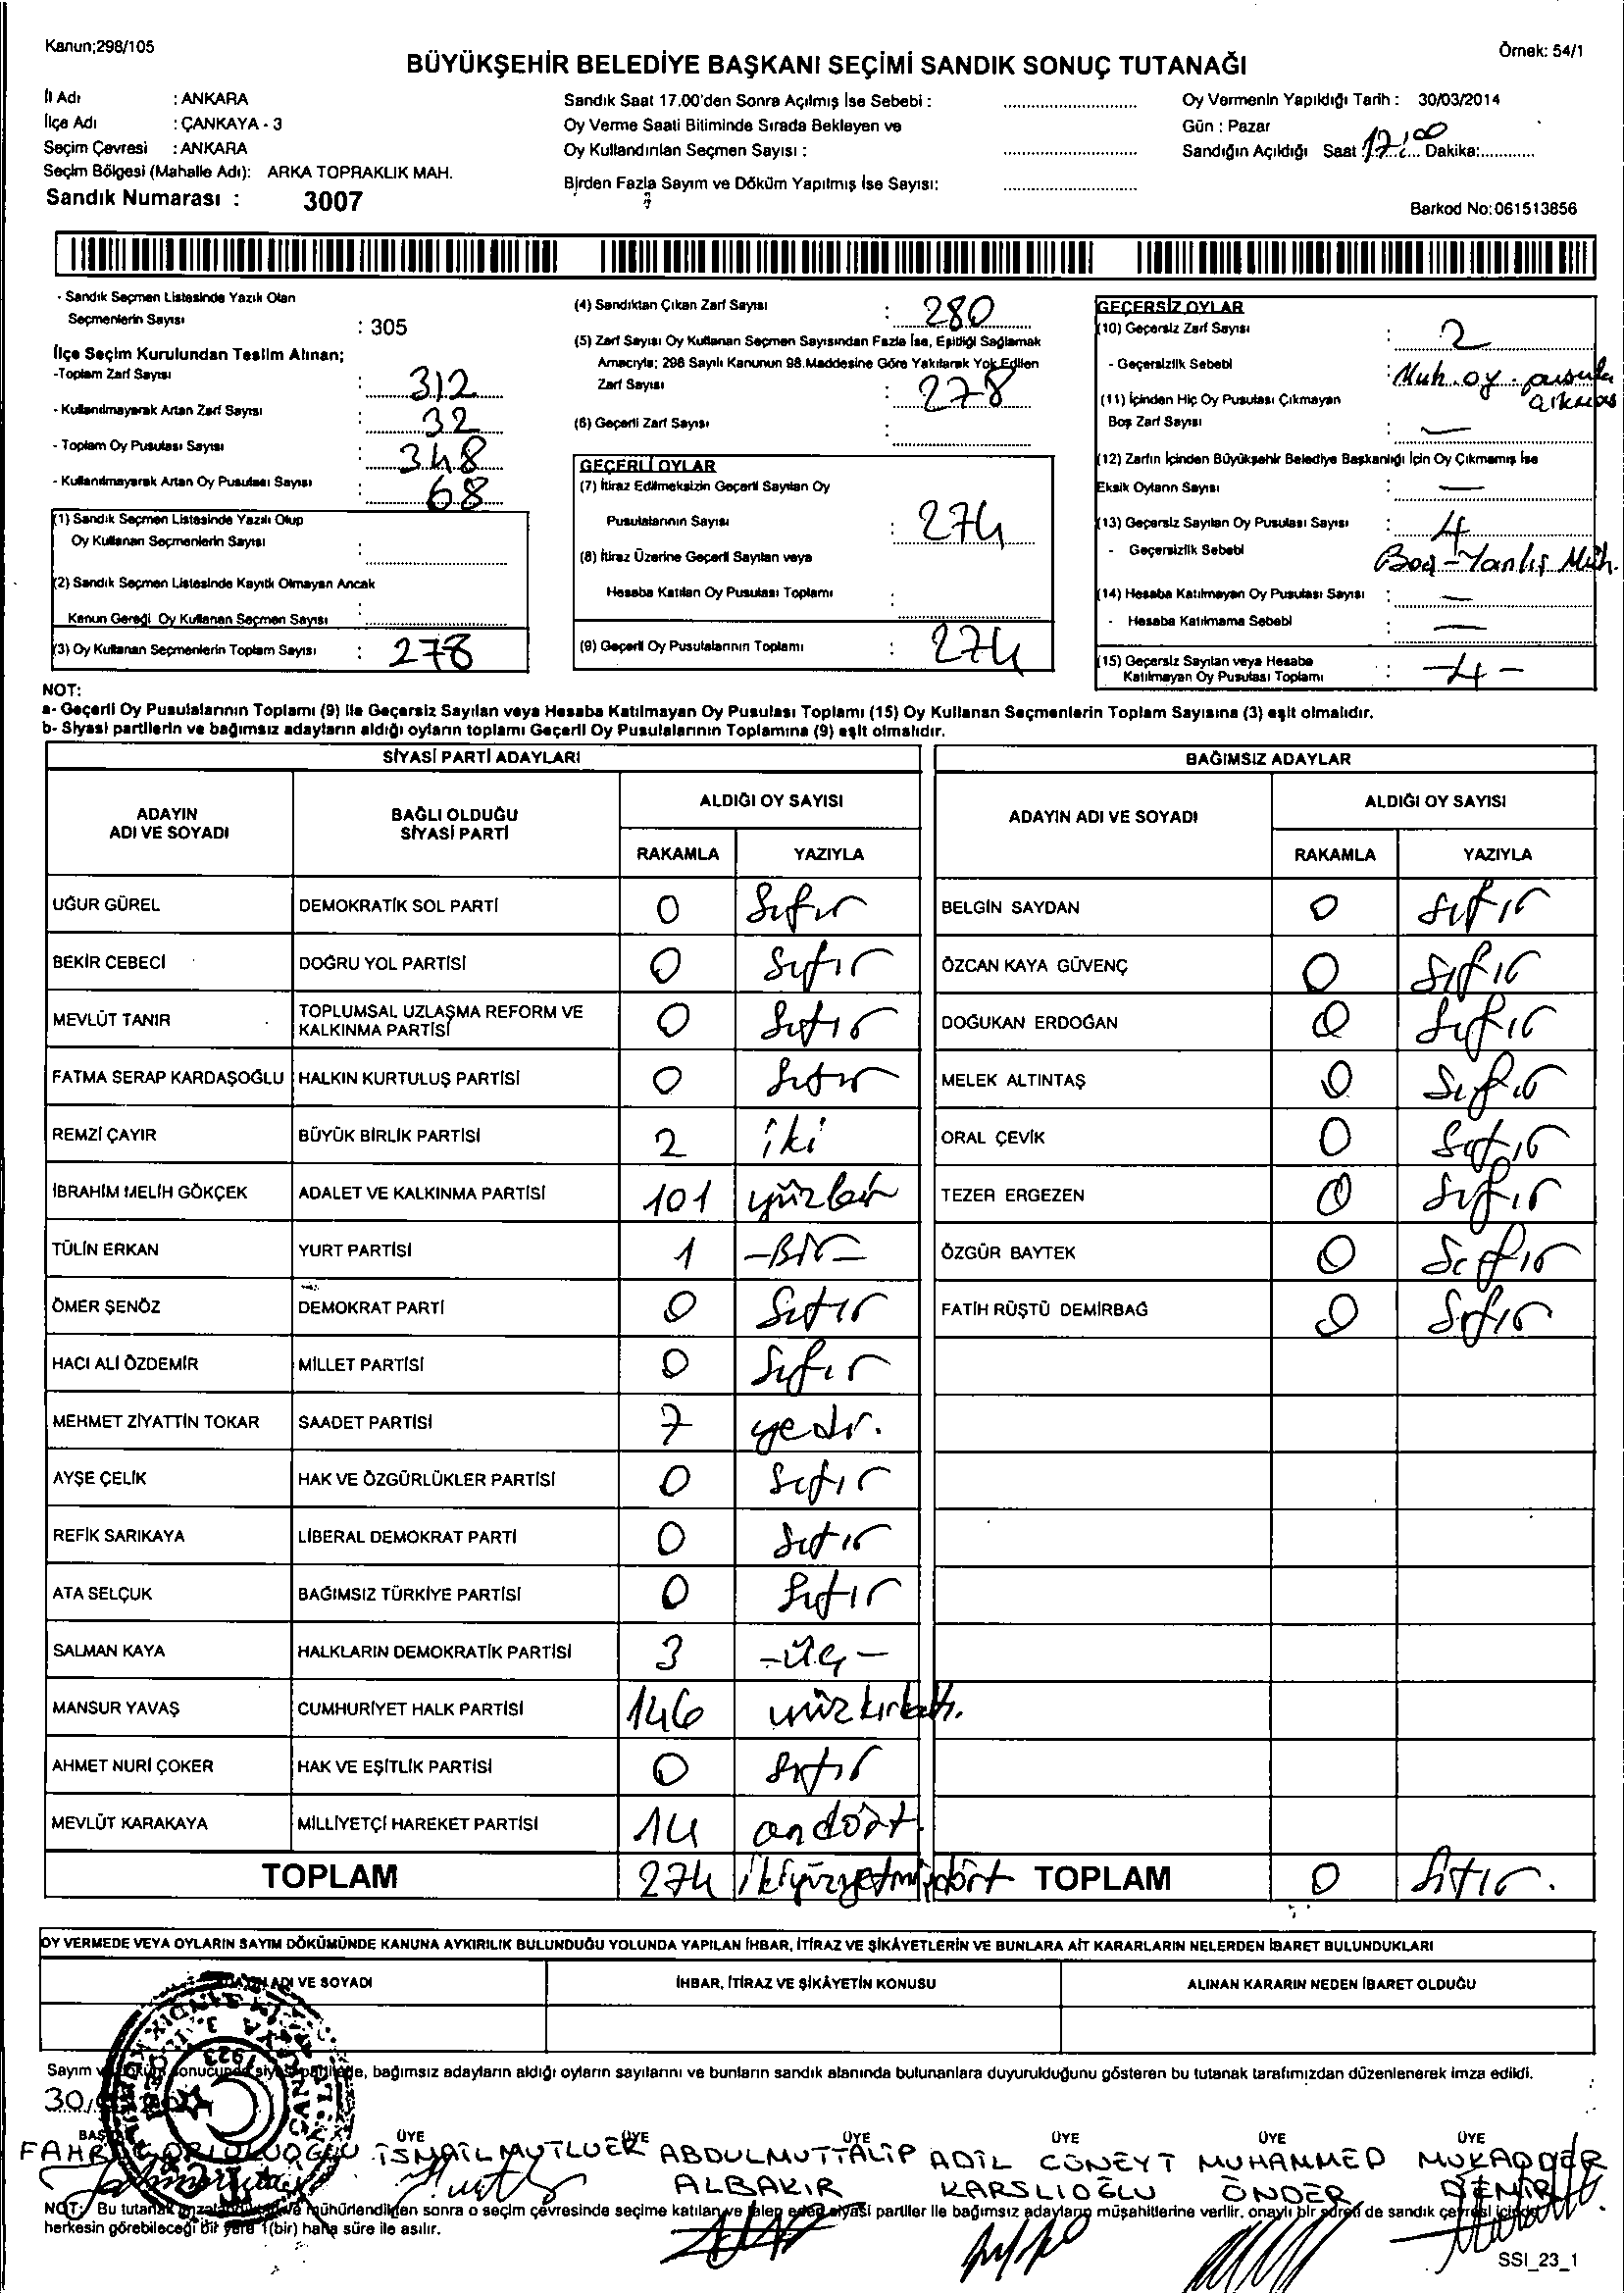 Kanun;298/105
Örnek: 54/1
BÜYÜKŞEHİR BELEDİYE BAŞKANI SEÇİMİ SANDIK SONUÇ TUTANAĞI
İl Adı : ANKARA
İlçe Adı : ÇANKAYA - 3
Seçim Çevresi : ANKARA
Seçim Bölgesi (Mahalle Adı): ARKA TOPRAKLIK MAH.
Sandık Numarası : 3007
Sandık Saat 17.00'den Sonra Açılmış İse Sebebi :
Oy Verme Saati Bitiminde Sırada Bekleyen ve
Oy Kullandırılan Seçmen Sayısı :
Birden Fazla Sayım ve Döküm Yapılmış İse Sayısı:
Oy Vermenin Yapıldığı Tarih : 30/03/2014
Gün : Pazar
Sandığın Açıldığı Saat 17:00 Dakika:
Barkod No:061513856
- Sandık Seçmen Listesinde Yazılı Olan
Seçmenlerin Sayısı : 305
İlçe Seçim Kurulundan Teslim Alınan;
-Toplam Zarf Sayısı : 312
- Kullanılmayarak Artan Zarf Sayısı : 32
- Toplam Oy Pusulası Sayısı : 348
- Kullanılmayarak Artan Oy Pusulası Sayısı : 68
(1) Sandık Seçmen Listesinde Yazılı Olup
Oy Kullanan Seçmenlerin Sayısı :
(2) Sandık Seçmen Listesinde Kayıtlı Olmayan Ancak
Kanun Gereği Oy Kullanan Seçmen Sayısı :
(3) Oy Kullanan Seçmenlerin Toplam Sayısı : 278
(4) Sandıktan Çıkan Zarf Sayısı : 280
(5) Zarf Sayısı Oy Kullanan Seçmen Sayısından Fazla İse, Eşitliği Sağlamak
Amacıyla; 298 Sayılı Kanunun 98.Maddesine Göre Yakılarak Yok Edilen
Zarf Sayısı : 278
(6) Geçerli Zarf Sayısı :
GEÇERLİ OYLAR
(7) İtiraz Edilmeksizin Geçerli Sayılan Oy
Pusulalarının Sayısı : 274
(8) İtiraz Üzerine Geçerli Sayılan veya
Hesaba Katılan Oy Pusulası Toplamı :
(9) Geçerli Oy Pusulalarının Toplamı : 274
GEÇERSİZ OYLAR
(10) Geçersiz Zarf Sayısı : 2
- Geçersizlik Sebebi : Muh. oy. pusula
(11) İçinden Hiç Oy Pusulası Çıkmayan
Boş Zarf Sayısı : —
(12) Zarfın İçinden Büyükşehir Belediye Başkanlığı İçin Oy Çıkmamış İse
Eksik Oyların Sayısı : —
(13) Geçersiz Sayılan Oy Pusulası Sayısı : 4
- Geçersizlik Sebebi Boş - Yanlış Müh.
(14) Hesaba Katılmayan Oy Pusulası Sayısı : —
- Hesaba Katılmama Sebebi : —
(15) Geçersiz Sayılan veya Hesaba
Katılmayan Oy Pusulası Toplamı : -4-
NOT:
a- Geçerli Oy Pusulalarının Toplamı (9) ile Geçersiz Sayılan veya Hesaba Katılmayan Oy Pusulası Toplamı (15) Oy Kullanan Seçmenlerin Toplam Sayısına (3) eşit olmalıdır.
b- Siyasi partilerin ve bağımsız adayların aldığı oyların toplamı Geçerli Oy Pusulalarının Toplamına (9) eşit olmalıdır.
SİYASİ PARTİ ADAYLARI
ADAYIN ADI VE SOYADI
BAĞLI OLDUĞU SİYASİ PARTİ
ALDIĞI OY SAYISI
RAKAMLA YAZIYLA
UĞUR GÜREL DEMOKRATİK SOL PARTİ 0 Sıfır
BEKİR CEBECİ DOĞRU YOL PARTİSİ 0 Sıfır
MEVLÜT TANIR TOPLUMSAL UZLAŞMA REFORM VE KALKINMA PARTİSİ 0 Sıfır
FATMA SERAP KARDAŞOĞLU HALKIN KURTULUŞ PARTİSİ 0 Sıfır
REMZİ ÇAYIR BÜYÜK BİRLİK PARTİSİ 2 iki
İBRAHİM MELİH GÖKÇEK ADALET VE KALKINMA PARTİSİ 101 yüzbir
TÜLİN ERKAN YURT PARTİSİ 1 -Bir-
ÖMER ŞENÖZ DEMOKRAT PARTİ 0 Sıfır
HACI ALİ ÖZDEMİR MİLLET PARTİSİ 0 Sıfır
MEHMET ZİYATTİN TOKAR SAADET PARTİSİ 7 yedi.
AYŞE ÇELİK HAK VE ÖZGÜRLÜKLER PARTİSİ 0 Sıfır
REFİK SARIKAYA LİBERAL DEMOKRAT PARTİ 0 Sıfır
ATA SELÇUK BAĞIMSIZ TÜRKİYE PARTİSİ 0 Sıfır
SALMAN KAYA HALKLARIN DEMOKRATİK PARTİSİ 3 -üç-
MANSUR YAVAŞ CUMHURİYET HALK PARTİSİ 146 yüzkırkaltı.
AHMET NURİ ÇOKER HAK VE EŞİTLİK PARTİSİ 0 Sıfır
MEVLÜT KARAKAYA MİLLİYETÇİ HAREKET PARTİSİ 14 ondört.
TOPLAM 274 ikiyüzyetmişdört
BAĞIMSIZ ADAYLAR
ADAYIN ADI VE SOYADI
ALDIĞI OY SAYISI
RAKAMLA YAZIYLA
BELGİN SAYDAN 0 Sıfır
ÖZCAN KAYA GÜVENÇ 0 Sıfır
DOĞUKAN ERDOĞAN 0 Sıfır
MELEK ALTINTAŞ 0 Sıfır
ORAL ÇEVİK 0 Sıfır
TEZER ERGEZEN 0 Sıfır
ÖZGÜR BAYTEK 0 Sıfır
FATİH RÜŞTÜ DEMİRBAĞ 0 Sıfır
TOPLAM 0 Sıfır.
OY VERMEDE VEYA OYLARIN SAYIM DÖKÜMÜNDE KANUNA AYKIRILIK BULUNDUĞU YOLUNDA YAPILAN İHBAR, İTİRAZ VE ŞİKÂYETLERİN VE BUNLARA AİT KARARLARIN NELERDEN İBARET BULUNDUKLARI
ADI VE SOYADI
İHBAR, İTİRAZ VE ŞİKÂYETİN KONUSU
ALINAN KARARIN NEDEN İBARET OLDUĞU
1923
Sayım bağımsız adayların aldığı oyların sayılarını ve bunların sandık alanında bulunanlara duyurulduğunu gösteren bu tutanak tarafımızdan düzenlenerek imza edildi.
30/
ÜYE ÜYE ÜYE ÜYE ÜYE ÜYE
İSMAİL MUTLUER ABDULMUTTALİP ADİL CÜNEYT MUHAMMED MUKADDER
ALBAKIR KARSLIOĞLU ÖNDER DEMİR
NOT: Bu tutanak mühürlendikten sonra o seçim çevresinde seçime katılan ve talep eden siyasi partiler ile bağımsız adayların müşahitlerine verilir, onaylı bir sureti de sandık çevresi içinde
herkesin görebileceği bir yere 1(bir) hafta süre ile asılır.
SSI_23_1